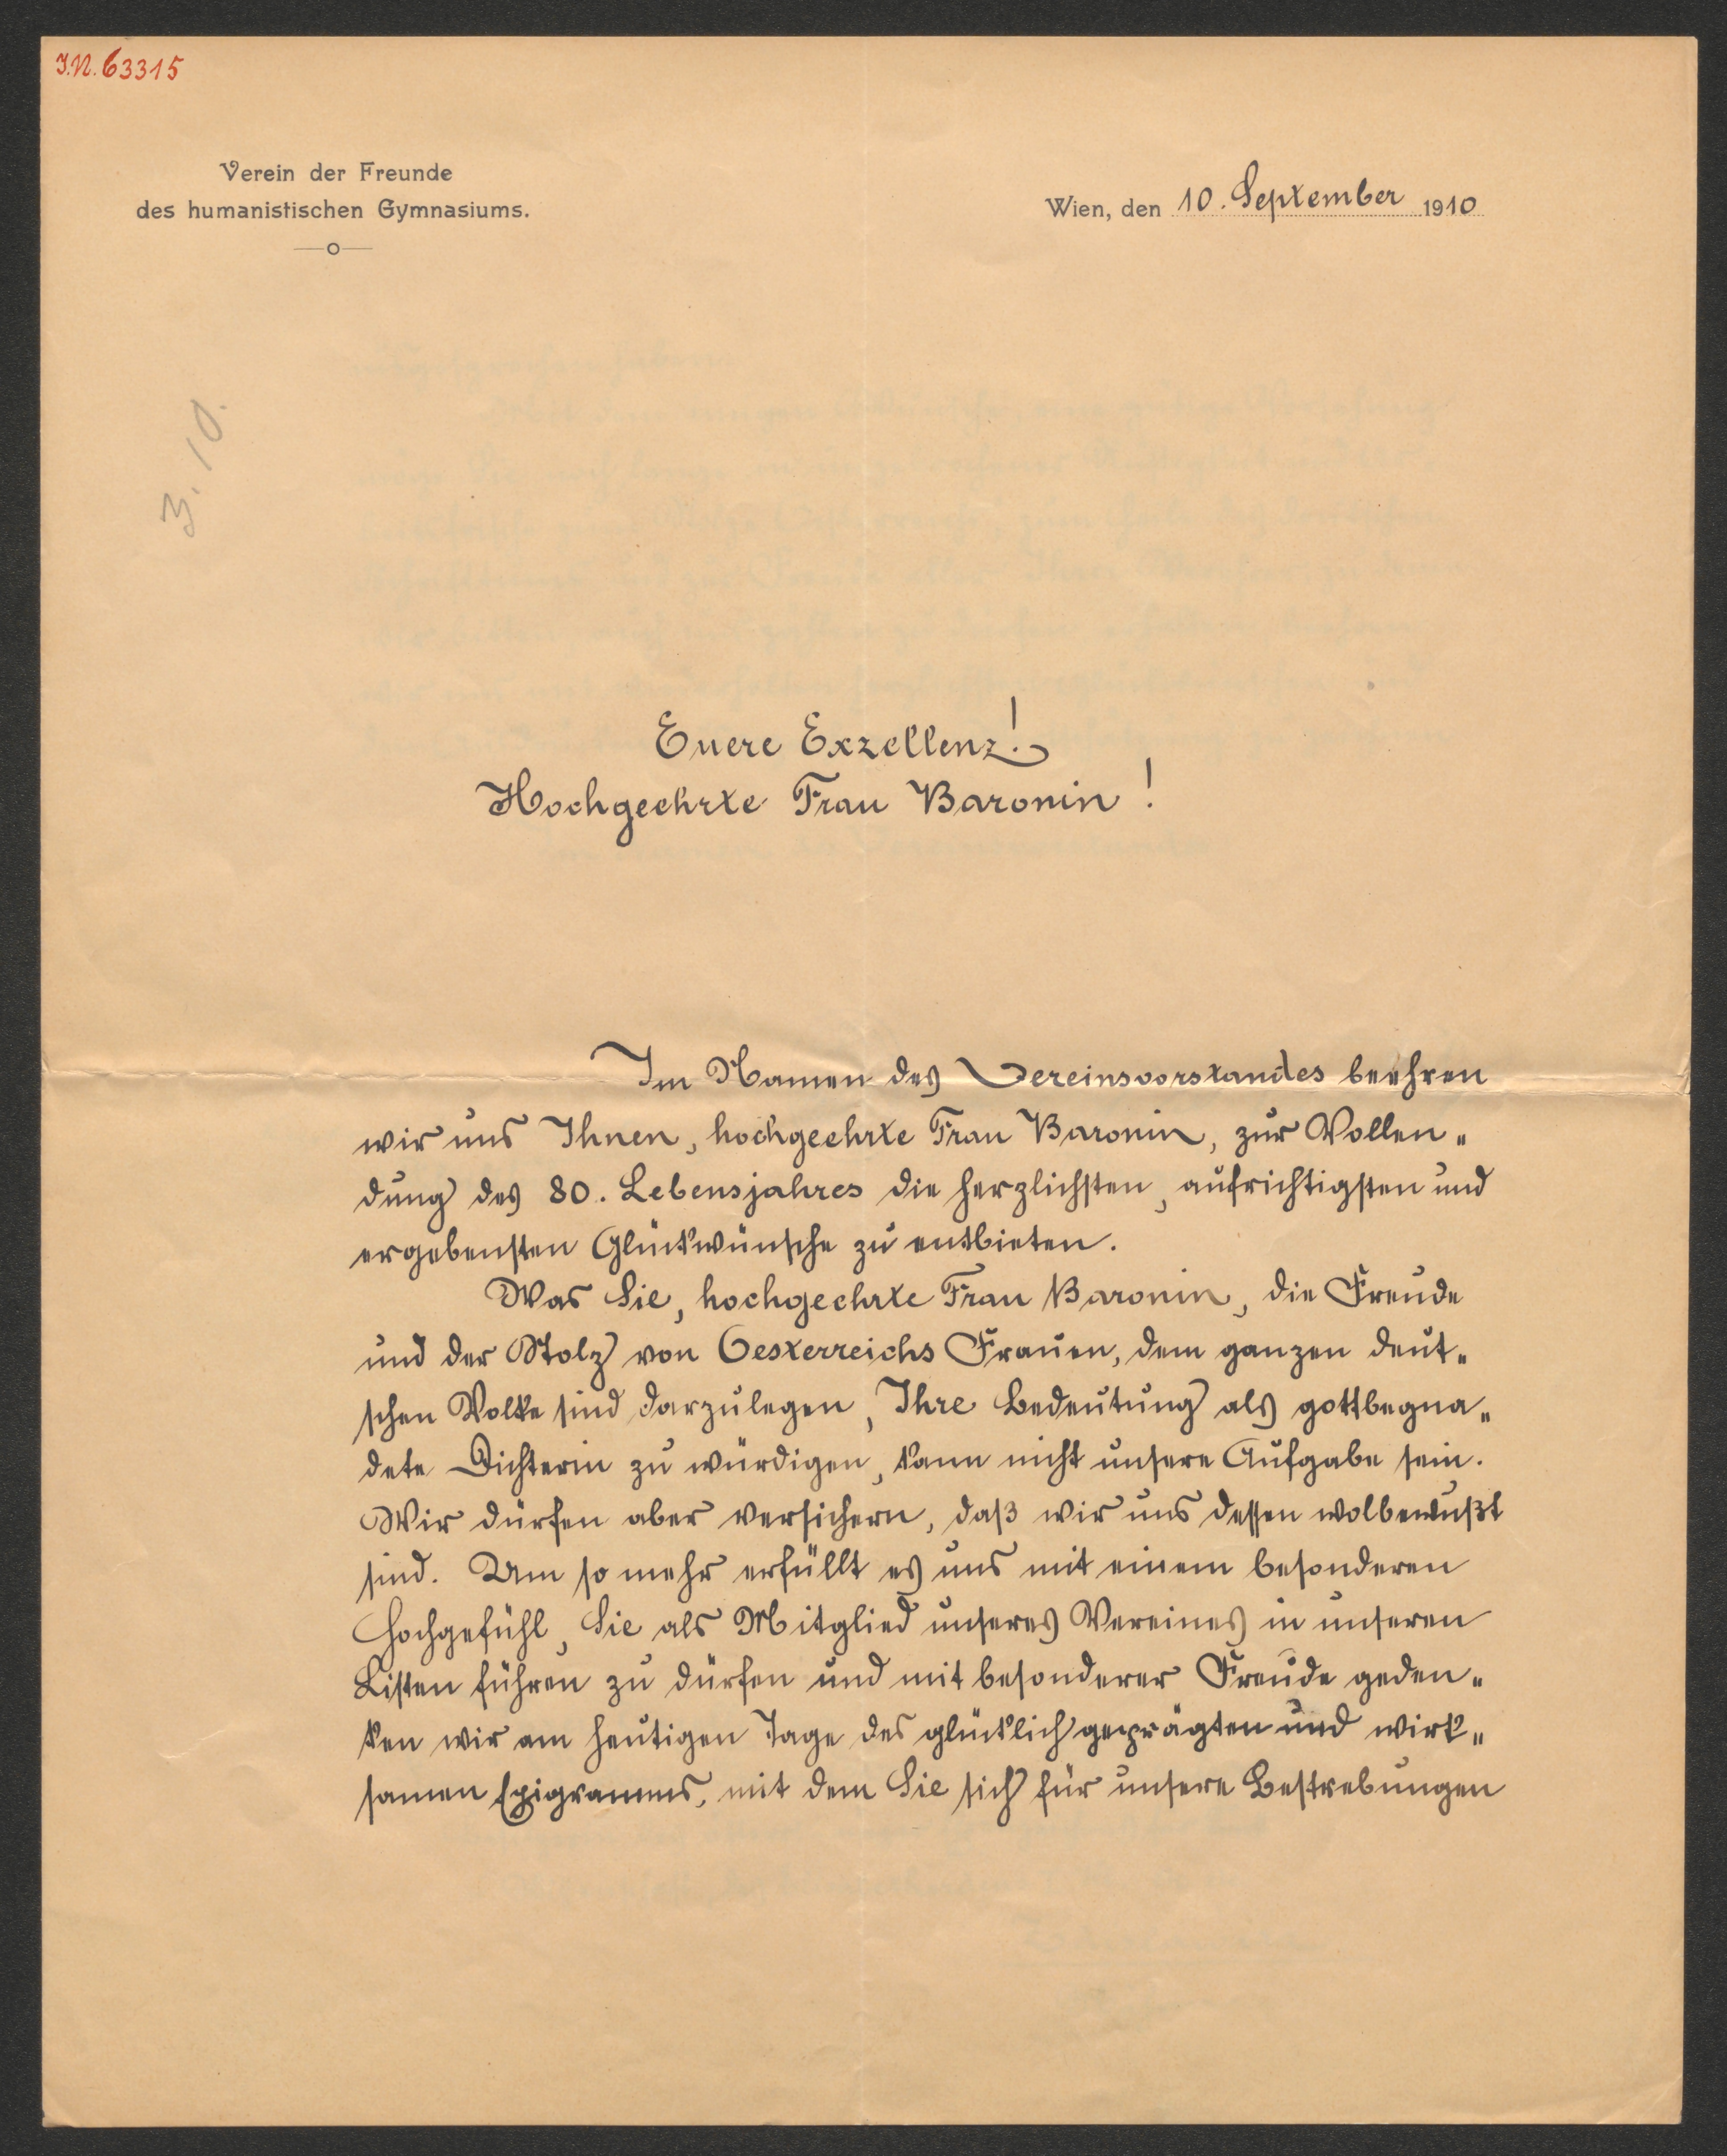 I.N. 63315
Verein der Freunde
des humanistischen Gymnasiums.
Wien, den 10. September 1910
3. 10.
Euere Exzellenz!
Hochgeehrte Frau Baronin!
Im Namen des Vereinsvorstandes beehren
wir uns Ihnen, hochgeehrte Frau Baronin, zur Vollen„
dung des 80. Lebensjahres die herzlichsten, aufrichtigsten und
ergebensten Glückwünsche zu entbieten.
Was Sie, hochgeehrte Frau Baronin, die Freude
und der Stolz von Oesterreichs Frauen, dem ganzen deut„
schen Volke sind darzulegen, Ihre Bedeutung als gottbegna„
dete Dichterin zu würdigen, kann nicht unsere Aufgabe sein.
Wir dürfen aber versichern, daß wir uns dessen wolbewußt
sind. Um so mehr erfüllt es uns mit einem besonderen
Hochgefühl, Sie als Mitglied unseres Vereines in unseren
Listen führen zu dürfen und mit besonderer Freude geden„
ken wir am heutigen Tage des glücklich geprägten und wirk„
samen Epigramms, mit dem Sie sich für unsere Bestrebungen